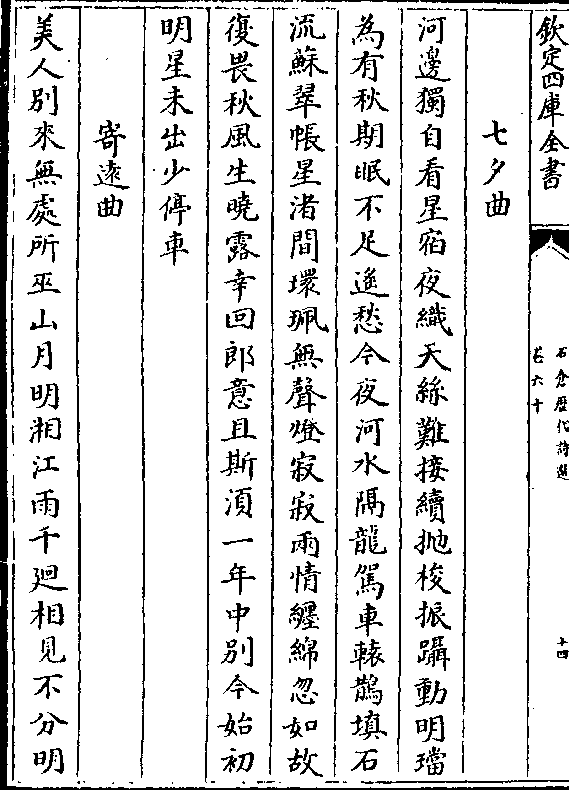 欽定四庫全書
石倉歷代詩選
卷六十
十四
七夕曲
河邊獨自看星宿夜織天絲難接續抛梭振躡動明璫
為有秋期眠不足遙愁今夜河水隔龍駕車轅鵲填石
流蘇翠帳星渚間環珮無聲燈寂寂兩情纒綿忽如故
復畏秋風生曉露幸回郎意且斯湏一年中别今始初
明星未出少停車
寄逺曲
美人别來無處所巫山月明湘江雨千廻相見不分明